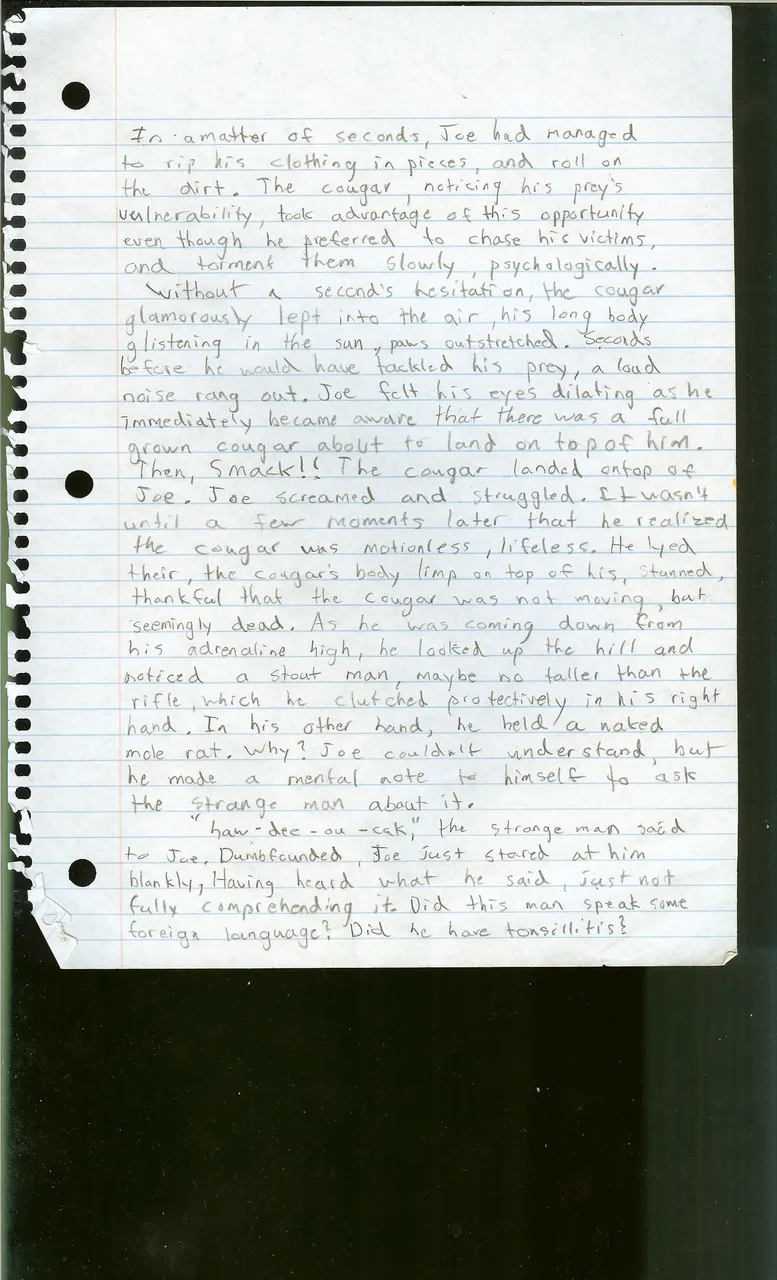 In a matter of seconds, Joe had managed
to rip his clothing in pieces, and roll on
the dirt. The cougar, noticing his prey's
vulnerability, took advantage of this opportunity
even though he preferred to chase his victims,
and torment them slowly, psychologically.
Without a second's hesitation, the cougar
glamorously lept into the air, his long body
glistening in the sun, paws outstretched. Seconds
before he would have tackled his prey, a loud
noise rang out. Joe felt his eyes dilating as he
immediately became aware that there was a full
grown cougar about to land on top of him.
Then, Smack!! The cougar landed ontop of
Joe. Joe screamed and struggled. It wasn't
until a few moments later that he realized
the cougar was motionless, lifeless. He lyed
their, the cougar's body limp on top of his, stunned,
thankful that the cougar was not moving, but
seemingly dead. As he was coming down from
his adrenaline high, he looked up the hill and
noticed a stout man, maybe no taller than the
rifle, which he clutched protectively in his right
hand. In his other hand, he held a naked
mole rat. Why? Joe couldn't understand, but
he made a mental note to himself to ask
the strange man about it.
"haw-dee-ou-cak," the strange man said
to Joe. Dumbfounded, Joe just stared at him
blankly, Having heard what he said, just not
fully comprehending it. Did this man speak some
foreign language? Did he have tonsillitis?